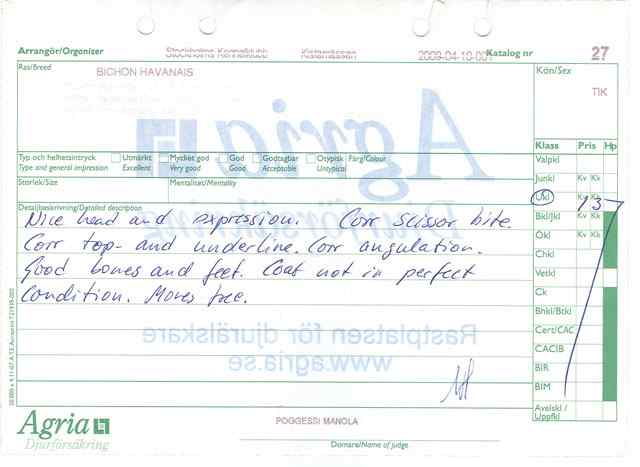 Arrangör/Organizer Stockholms Kennelklubb Kistamässan 2009-04-10-001 Katalog nr 27
Ras/Breed
BICHON HAVANAIS
Kön/Sex
TIK
Agria
Djurförsäkring
Klass Pris Hp
Valpkl
Junkl Kv Kk
Ukl Kv Kk 1 3
Bkl/Jkl Kv Kk
Ökl Kv Kk
Chkl
Vetkl
Ck
Bhkl/Btkl
Cert/CAC
CACIB
BIR
BIM
Avelskl/
Uppfkl
Typ och helhetsintryck Utmärkt Mycket god God Godtagbar Otypisk Färg/Colour
Type and general impression Excellent Very good Good Acceptable Untypical
Storlek/Size Mentalitet/Mentality
Detaljbeskrivning/Detailed description
Nice head and expression. Corr scissor bite.
Corr top- and underline. Corr angulation.
Good bones and feet. Coat not in perfect
condition. Moves free.
Rastplatsen för djurälskare
www.agria.se
Agria
Djurförsäkring
POGGESSI MANOLA
Domare/Name of judge